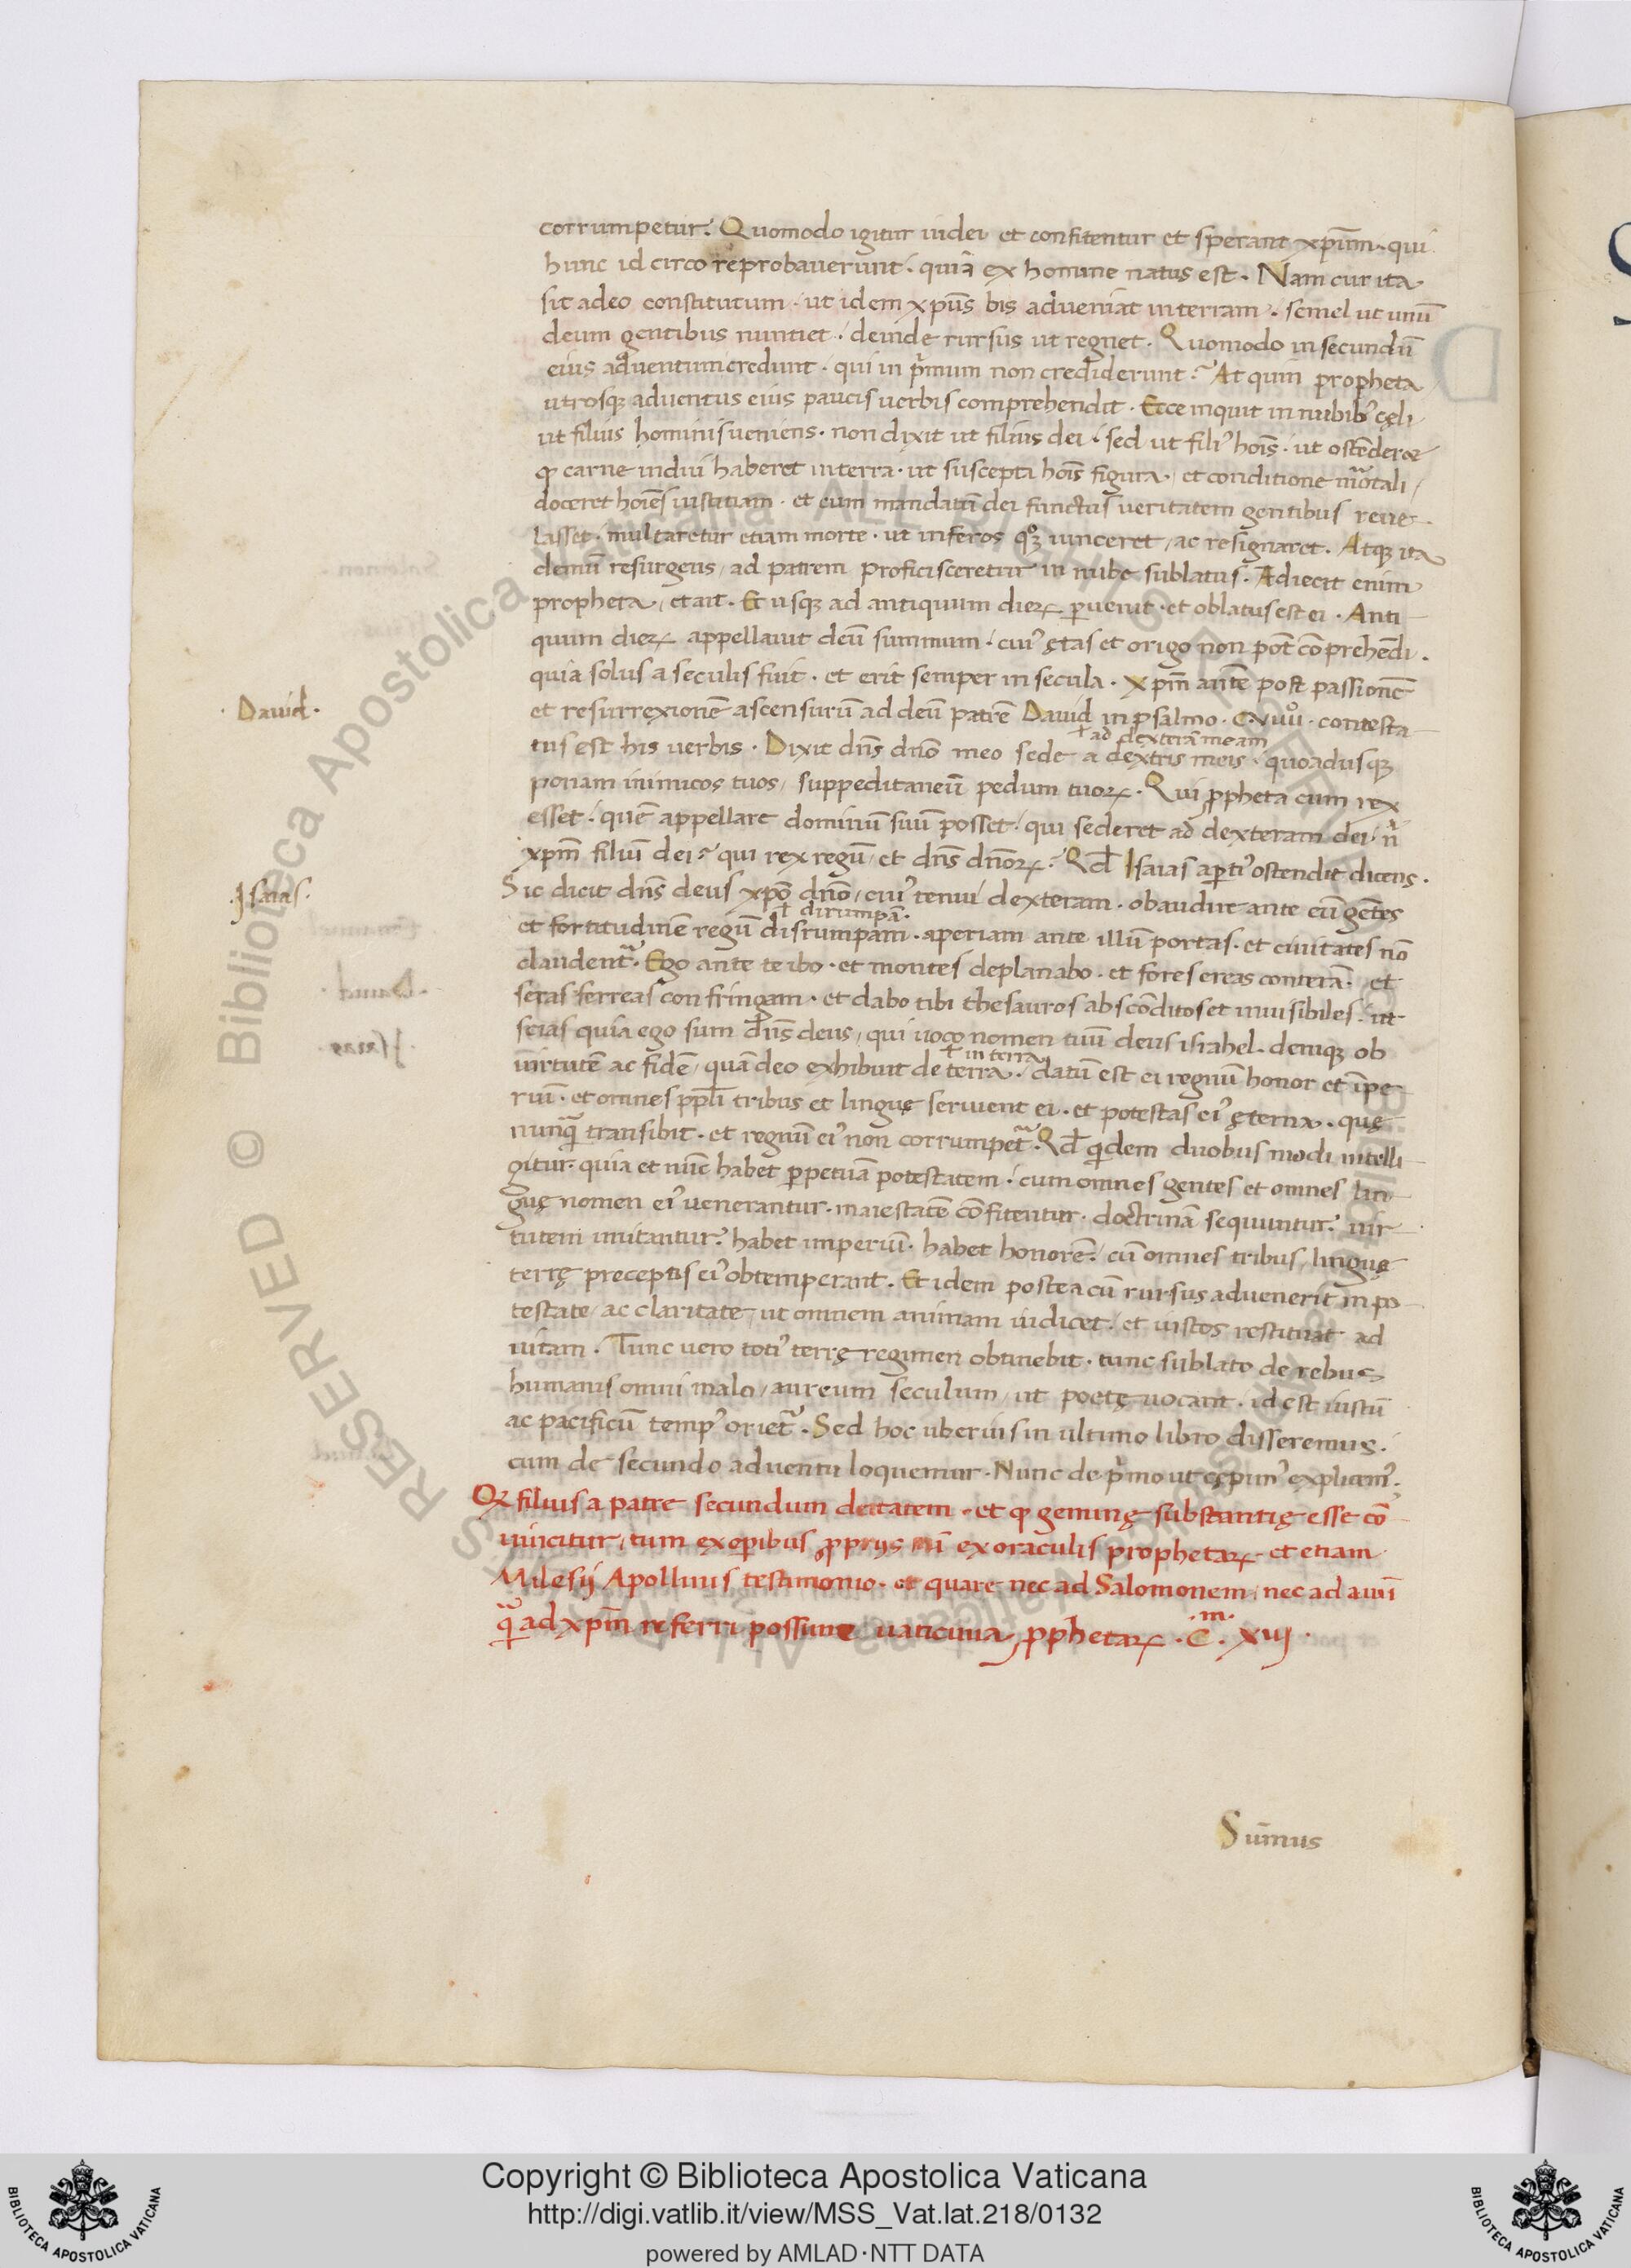 corrumpetur? Quomodo igitur iudei et confitentur et sperant xp̄um. qui
hunc id circo reprobauerunt. quia ex homine natus est. Nam cur ita
sit adeo constitutum. ut idem xp̄us bis adueniat in terram. semel ut unū
deum gentibus nuntiet. deinde rursus ut regnet. Quomodo in secundū
eius aduentum credunt. qui in p̍mum non crediderunt? At qum propheta
utrosqꝫ aduentus eius paucis uerbis comprehendit. Ecce inquit in nubibꝰ cęli
ut filius hominis ueniens. non dixit ut filius dei. sed ut filiꝰ hoīs. ut ostēderet
ꝙ carne indui haberet in terra. ut suscepta hoīs figura, et conditione mortali,
doceret hoīes iustitiam. et cum mandatū dei functus ueritatem gentibus reue
lasset. multaretur etiam morte. ut inferos qͦꝫ uinceret, ac resignaret. Atqꝫ ita
demū resurgens, ad patrem proficisceretur in nube sublatus. Adiecit enim
propheta, et ait. Et usqꝫ ad antiquum dieꝝ ꝑuenit. et oblatus est ei. Anti
quum dieꝝ appellauit deū summum. cuiꝰ ętas et origo non pōt cōprehēdi.
quia solus a seculis fuit. et erit semper in secula. Xp̄m autē post passionē
David.
et resurrexionē ascensurū ad deū patrē David in psalmo. C.VIIIIͦ. contesta
ł ad dexterā meam
tus est his uerbis. Dixit dn̄s dn̄o meo sede a dextris meis. quoadusqꝫ
ponam inimicos tuos, suppeditaneū pedum tuoꝝ. Qui ꝓpheta cum rex
esset. quē appellare dominū suū posset. qui sederet ad dexteram dei. n̍
xp̄m filiū dei? qui rex regū, et dn̄s dn̄oꝝ? Qđ Isaias aꝑtiꝰ ostendit dicens.
Isaias.
Sic dicit dn̄s deus xp̄o dn̄o, cuiꝰ tenui dexteram. obaudire ante eū gētes
ł dirumpā.
et fortitudinē regū disrumpam. aperiam ante illū portas. et ciuitates nō
claudentᷓ. Ego ante te ibo. et montes deplanabo. et fores ereas conterā. et
seras ferreas confringam. et dabo tibi thesauros abscōditos et inuisibiles. ut
scias quia ego sum dn̄s deus, qui uoco nomen tuū deus israhel. deniqꝫ ob
ł in terra
uirtutē ac fidē, quā deo exhibuit de terra. datū est ei regnū honor et īpe
riū. et omnes ppl̄i tribus et linguę seruient ei. et potestas eiꝰ ęterna. quę
nunqᷓ transibit. et regnū eiꝰ non corrumpetᷓ. Qđ qͥdem duobus modi intelli
gitur. quia et nūc habet ꝑpetuā potestatem. cum omnes gentes et omnes lin
guę nomen eiꝰ uenerantur. maiestatē cōfitentur. doctrinā sequuntur. uir
tutem imitantur. habet imperiū. habet honorē. cū omnes tribus, linguę
terrę preceptis eiꝰ obtemperant. Et idem postea cū rursus aduenerit in po
testate, ac claritate, ut omnem animam iudicet, et iustos restituat ad
uitam. Tunc uero totiꝰ terrę regimen obtinebit. tunc sublato de rebus
humanis omni malo, aureum seculum, ut poetę uocant. id est iustū
ac pacificū tempꝰ orietᷓ. Sed hoc uberius in ultimo libro disseremus.
cum de secundo aduentu loquemur. Nunc de p̍mo ut cępimꝰ explicemꝰ.
Qꝙ filius a patre secundum deitatem. et ꝙ geminę substantię esse cō
uincitur, tum ex oꝑibus ꝓpriis ex oraculis prophetaꝝ. et etiam
Milesij Apollinis testimonio. et quare nec ad Salomonem, nec ad
qᷓ ad xp̄m referri possunt uaticinia ꝓphetaꝝ. C.ᵐ XIIJ.
Sūmus
Copyright © Biblioteca Apostolica Vaticana
http://digi.vatlib.it/view/MSS_Vat.lat.218/0132
powered by AMLAD·NTT DATA
BIBLIOTECA APOSTOLICA VATICANA
BIBLIOTECA APOSTOLICA VATICANA